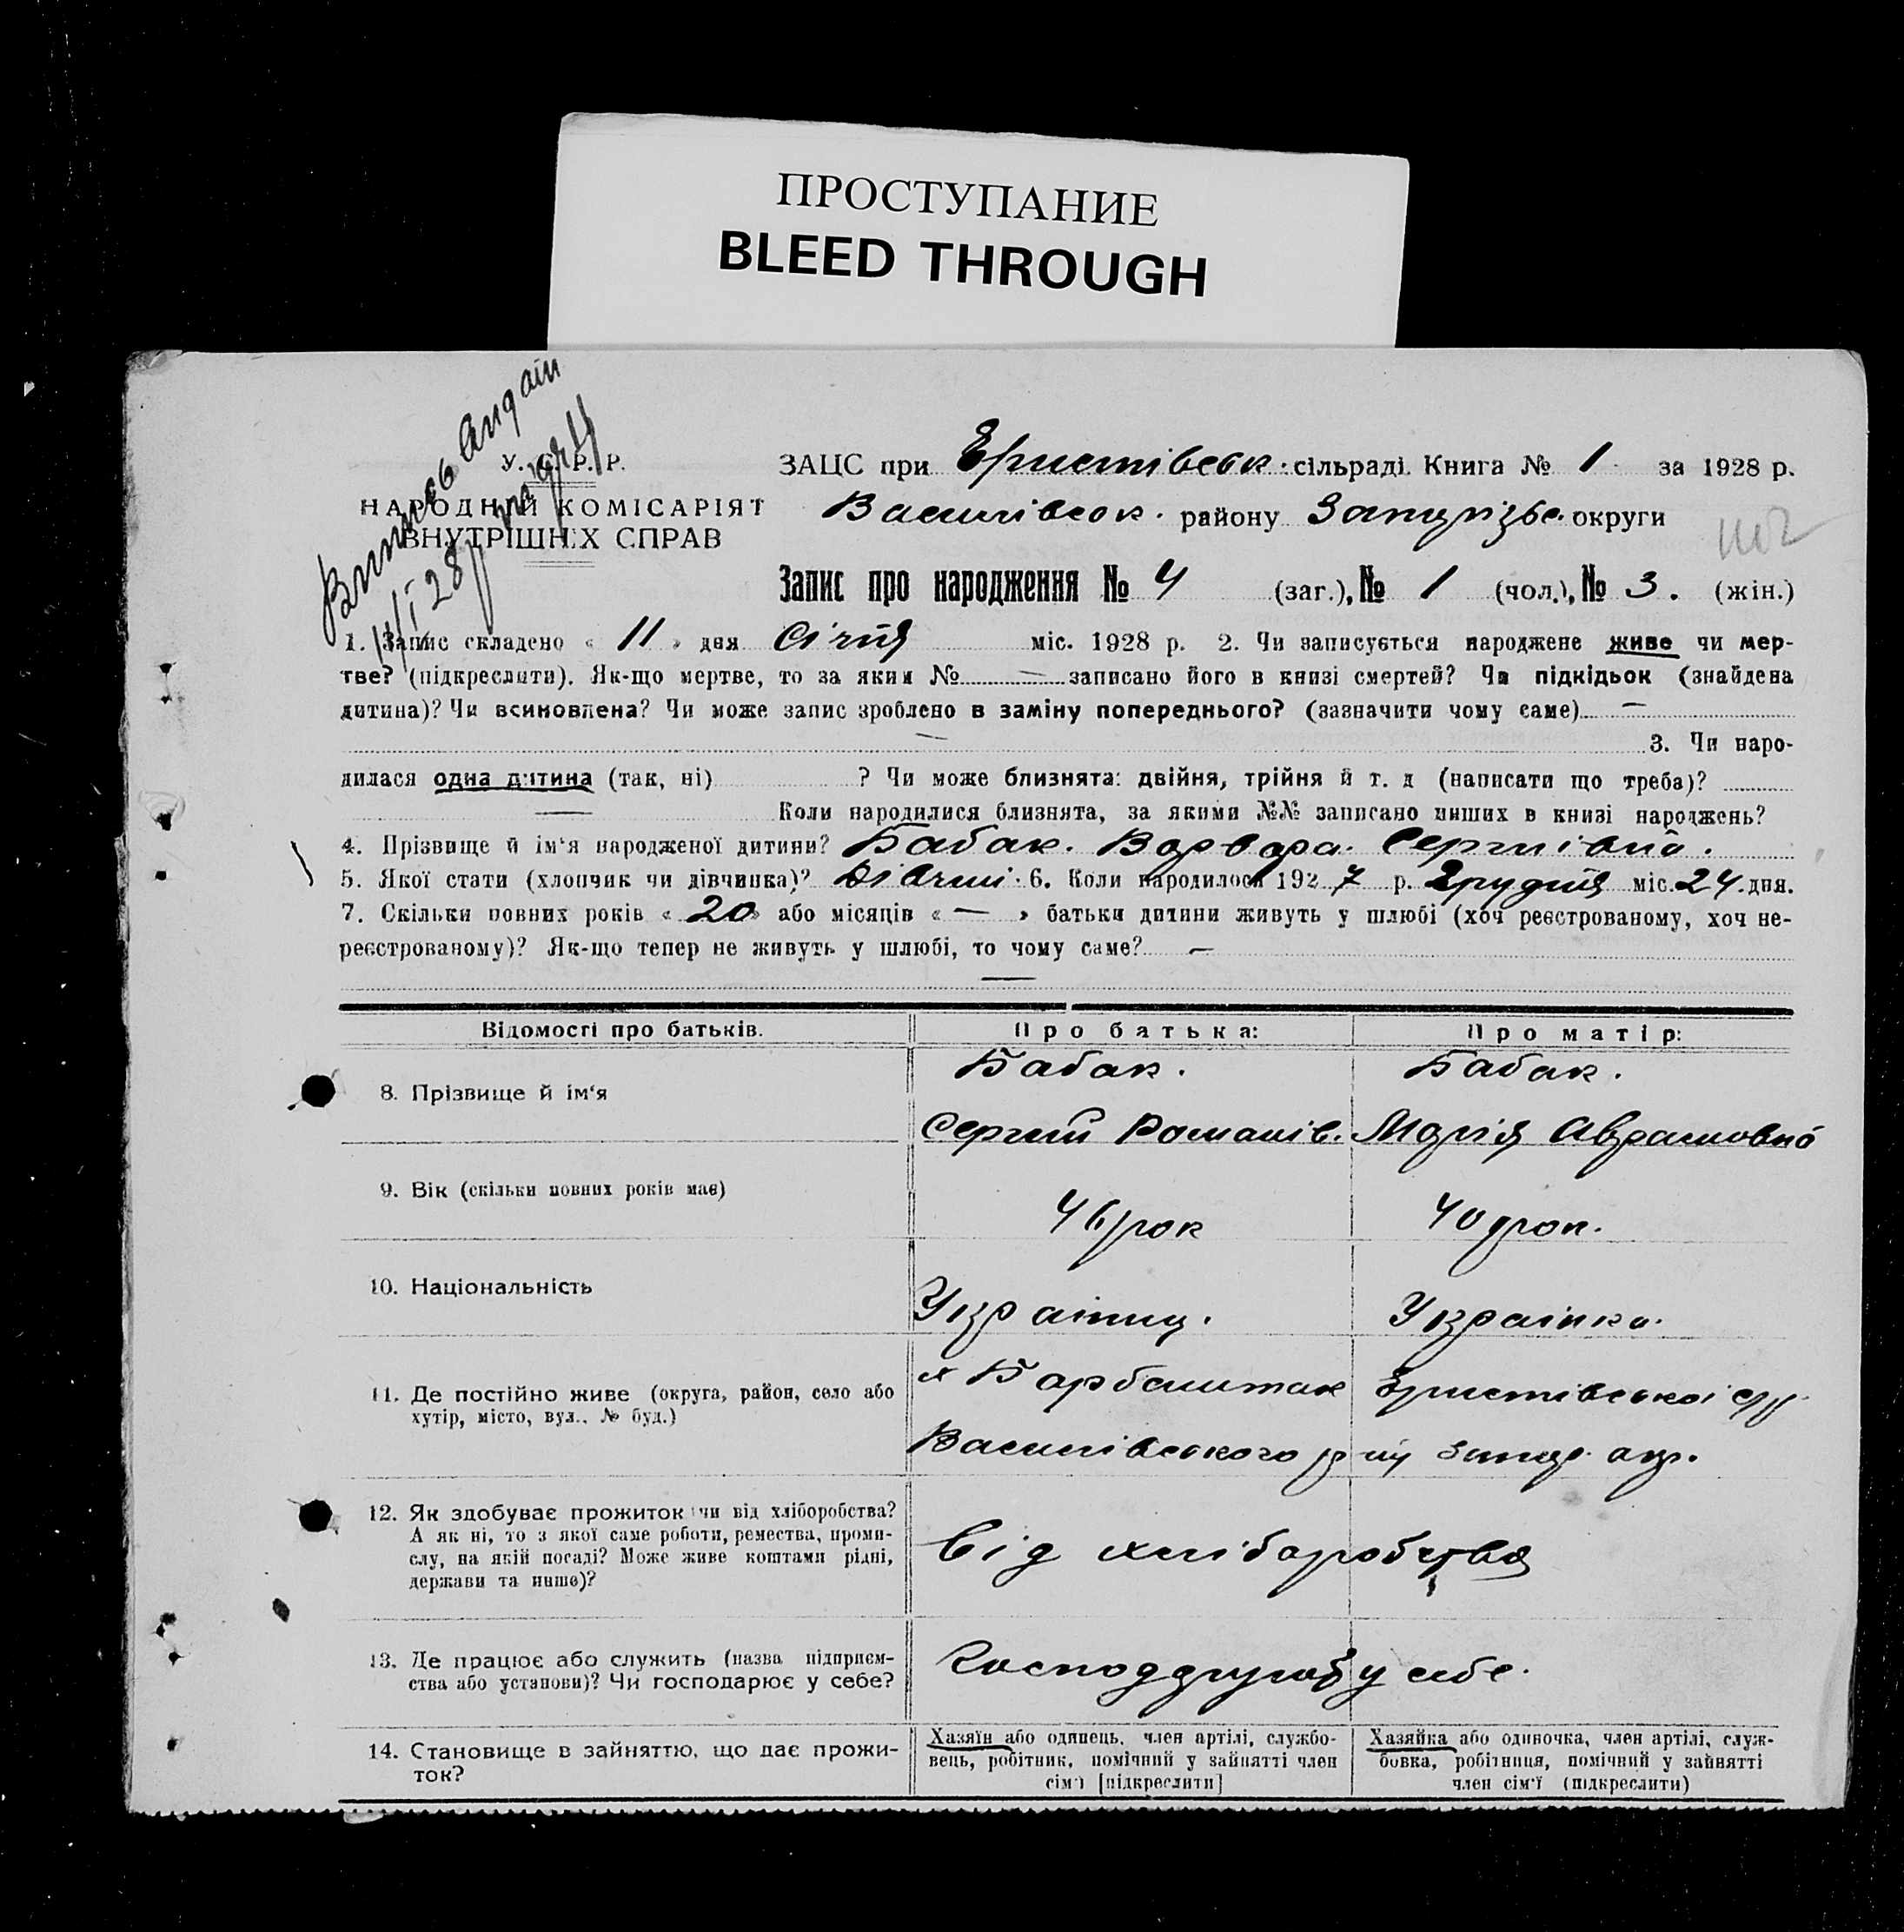 ПРОСТУПАНИЕ
BLEED THROUGH
У. С. Р. Р.
НАРОДНИЙ КОМІСАРІЯТ
ВНУТРІШНІХ СПРАВ
14/I 28
ЗАЦС при Еристівськ. сільраді. Книга № 1 за 1928 р.
Василівськ. району Запорізьк. округи
Запис про народження № 4 (заг.), № 1 (чол.), № 3. (жін.)
1. Запис складено « 11 » дня Січня міс. 1928 р. 2. Чи записується народжене живе чи мер-
тве? (підкреслити). Як-що мертве, то за яким № — записано його в книзі смертей? Чи підкідьок (знайдена
дитина)? Чи всиновлена? Чи може запис зроблено в заміну попереднього? (зазначити чому саме) —
— 3. Чи наро-
дилася одна дитина (так, ні) ? Чи може близнята: двійня, трійня й т. д (написати що треба)?
— Коли народилися близнята, за якими №№ записано инших в книзі народжень?
4. Прізвище й ім‘я народженої дитини? Бабак. Варвара Сергиівна.
5. Якої стати (хлопчик чи дівчинка)? Дівчині. 6. Коли народилося 1927 р. Грудня міс. 24. дня.
7. Скільки повних років « 20 » або місяців « — » батьки дитини живуть у шлюбі (хоч реєстрованому, хоч не-
реєстрованому)? Як-що тепер не живуть у шлюбі, то чому саме? —
—
Відомості про батьків. Про батька: Про матір:
8. Прізвище й ім‘я Бабак. Бабак.
Сергий Романів. Марія Аврамовна
9. Вік (скільки повних років має) 46 рок 40 рок.
10. Національність Украінец. Украінка.
11. Де постійно живе (округа, район, село або
хутір, місто, вул., № буд.)
х Барбаштах Еристівськоі с/р.
Василівського р-ну Запор. окр.
12. Як здобуває прожиток чи від хліборобства?
А як ні, то з якої саме роботи, ремества, проми-
слу, на якій посаді? Може живе коштами рідні,
держави та инше)?
Від хліборобства
13. Де працює або служить (назва підприєм-
ства або установи)? Чи господарює у себе?
у себе.
14. Становище в зайняттю, що дає прожи-
ток?
Хазяїн або одинець, член артілі, службо-
вець, робітник, помічний у зайнятті член
сім‘ї [підкреслити]
Хазяйка або одиночка, член артілі, служ-
бовка, робітниця, помічний у зайнятті
член сім‘ї (підкреслити)